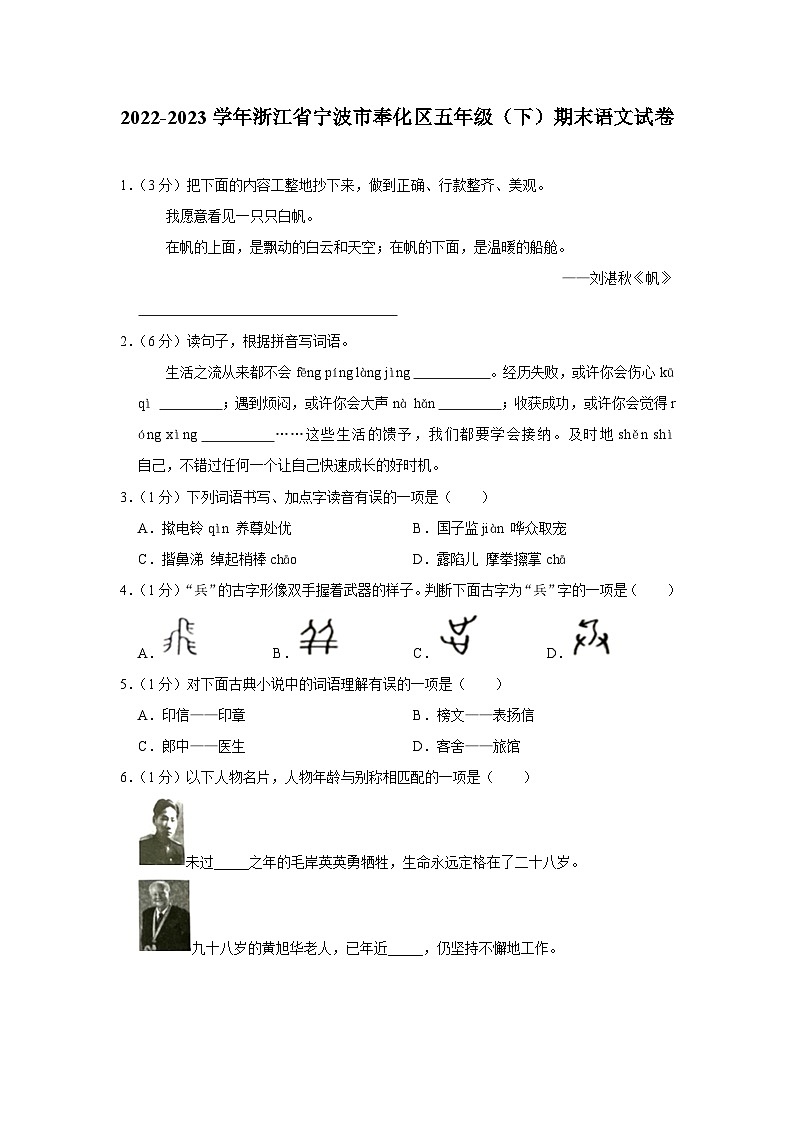 2022-2023 学年浙江省宁波市奉化区五年级（下）期末语文试卷
1.（3 分）把下面的内容工整地抄下来，做到正确、行款整齐、美观。
我愿意看见一只只白帆。
在帆的上面，是飘动的白云和天空；在帆的下面，是温暖的船舱。
——刘湛秋《帆》
2.（6 分）读句子，根据拼音写词语。
生活之流从来都不会 fēng píng làng jìng ___________。经历失败，或许你会伤心 kū
qì _________；遇到烦闷，或许你会大声 nà hǎn _________；收获成功，或许你会觉得 r
óng xìng __________……这些生活的馈予，我们都要学会接纳。及时地 shěn shì
自己，不错过任何一个让自己快速成长的好时机。
3.（1 分）下列词语书写、加点字读音有误的一项是（　　）
A．揿电铃 qìn 养尊处优　B．国子监 jiàn 哗众取宠
C．揩鼻涕 绰起梢棒 chāo　D．露陷儿 摩拳擦掌 chā
4.（1 分）“兵”的古字形像双手握着武器的样子。判断下面古字为“兵”字的一项是（　　）
A．　B．　C．　D．
5.（1 分）对下面古典小说中的词语理解有误的一项是（　　）
A．印信——印章　B．榜文——表扬信
C．郎中——医生　D．客舍——旅馆
6.（1 分）以下人物名片，人物年龄与别称相匹配的一项是（　　）
未过_____之年的毛岸英英勇牺牲，生命永远定格在了二十八岁。
九十八岁的黄旭华老人，已年近_____，仍坚持不懈地工作。